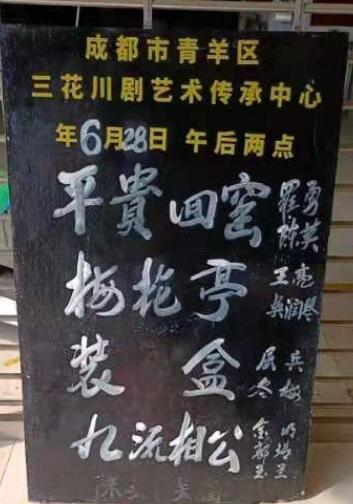 成都市青羊区
三花川剧艺术传承中心
年6月28日 午后两点
平貴回窑 羅勇 陈英
梅花亭 王亮
装盒 兵 冬梅
九流相公